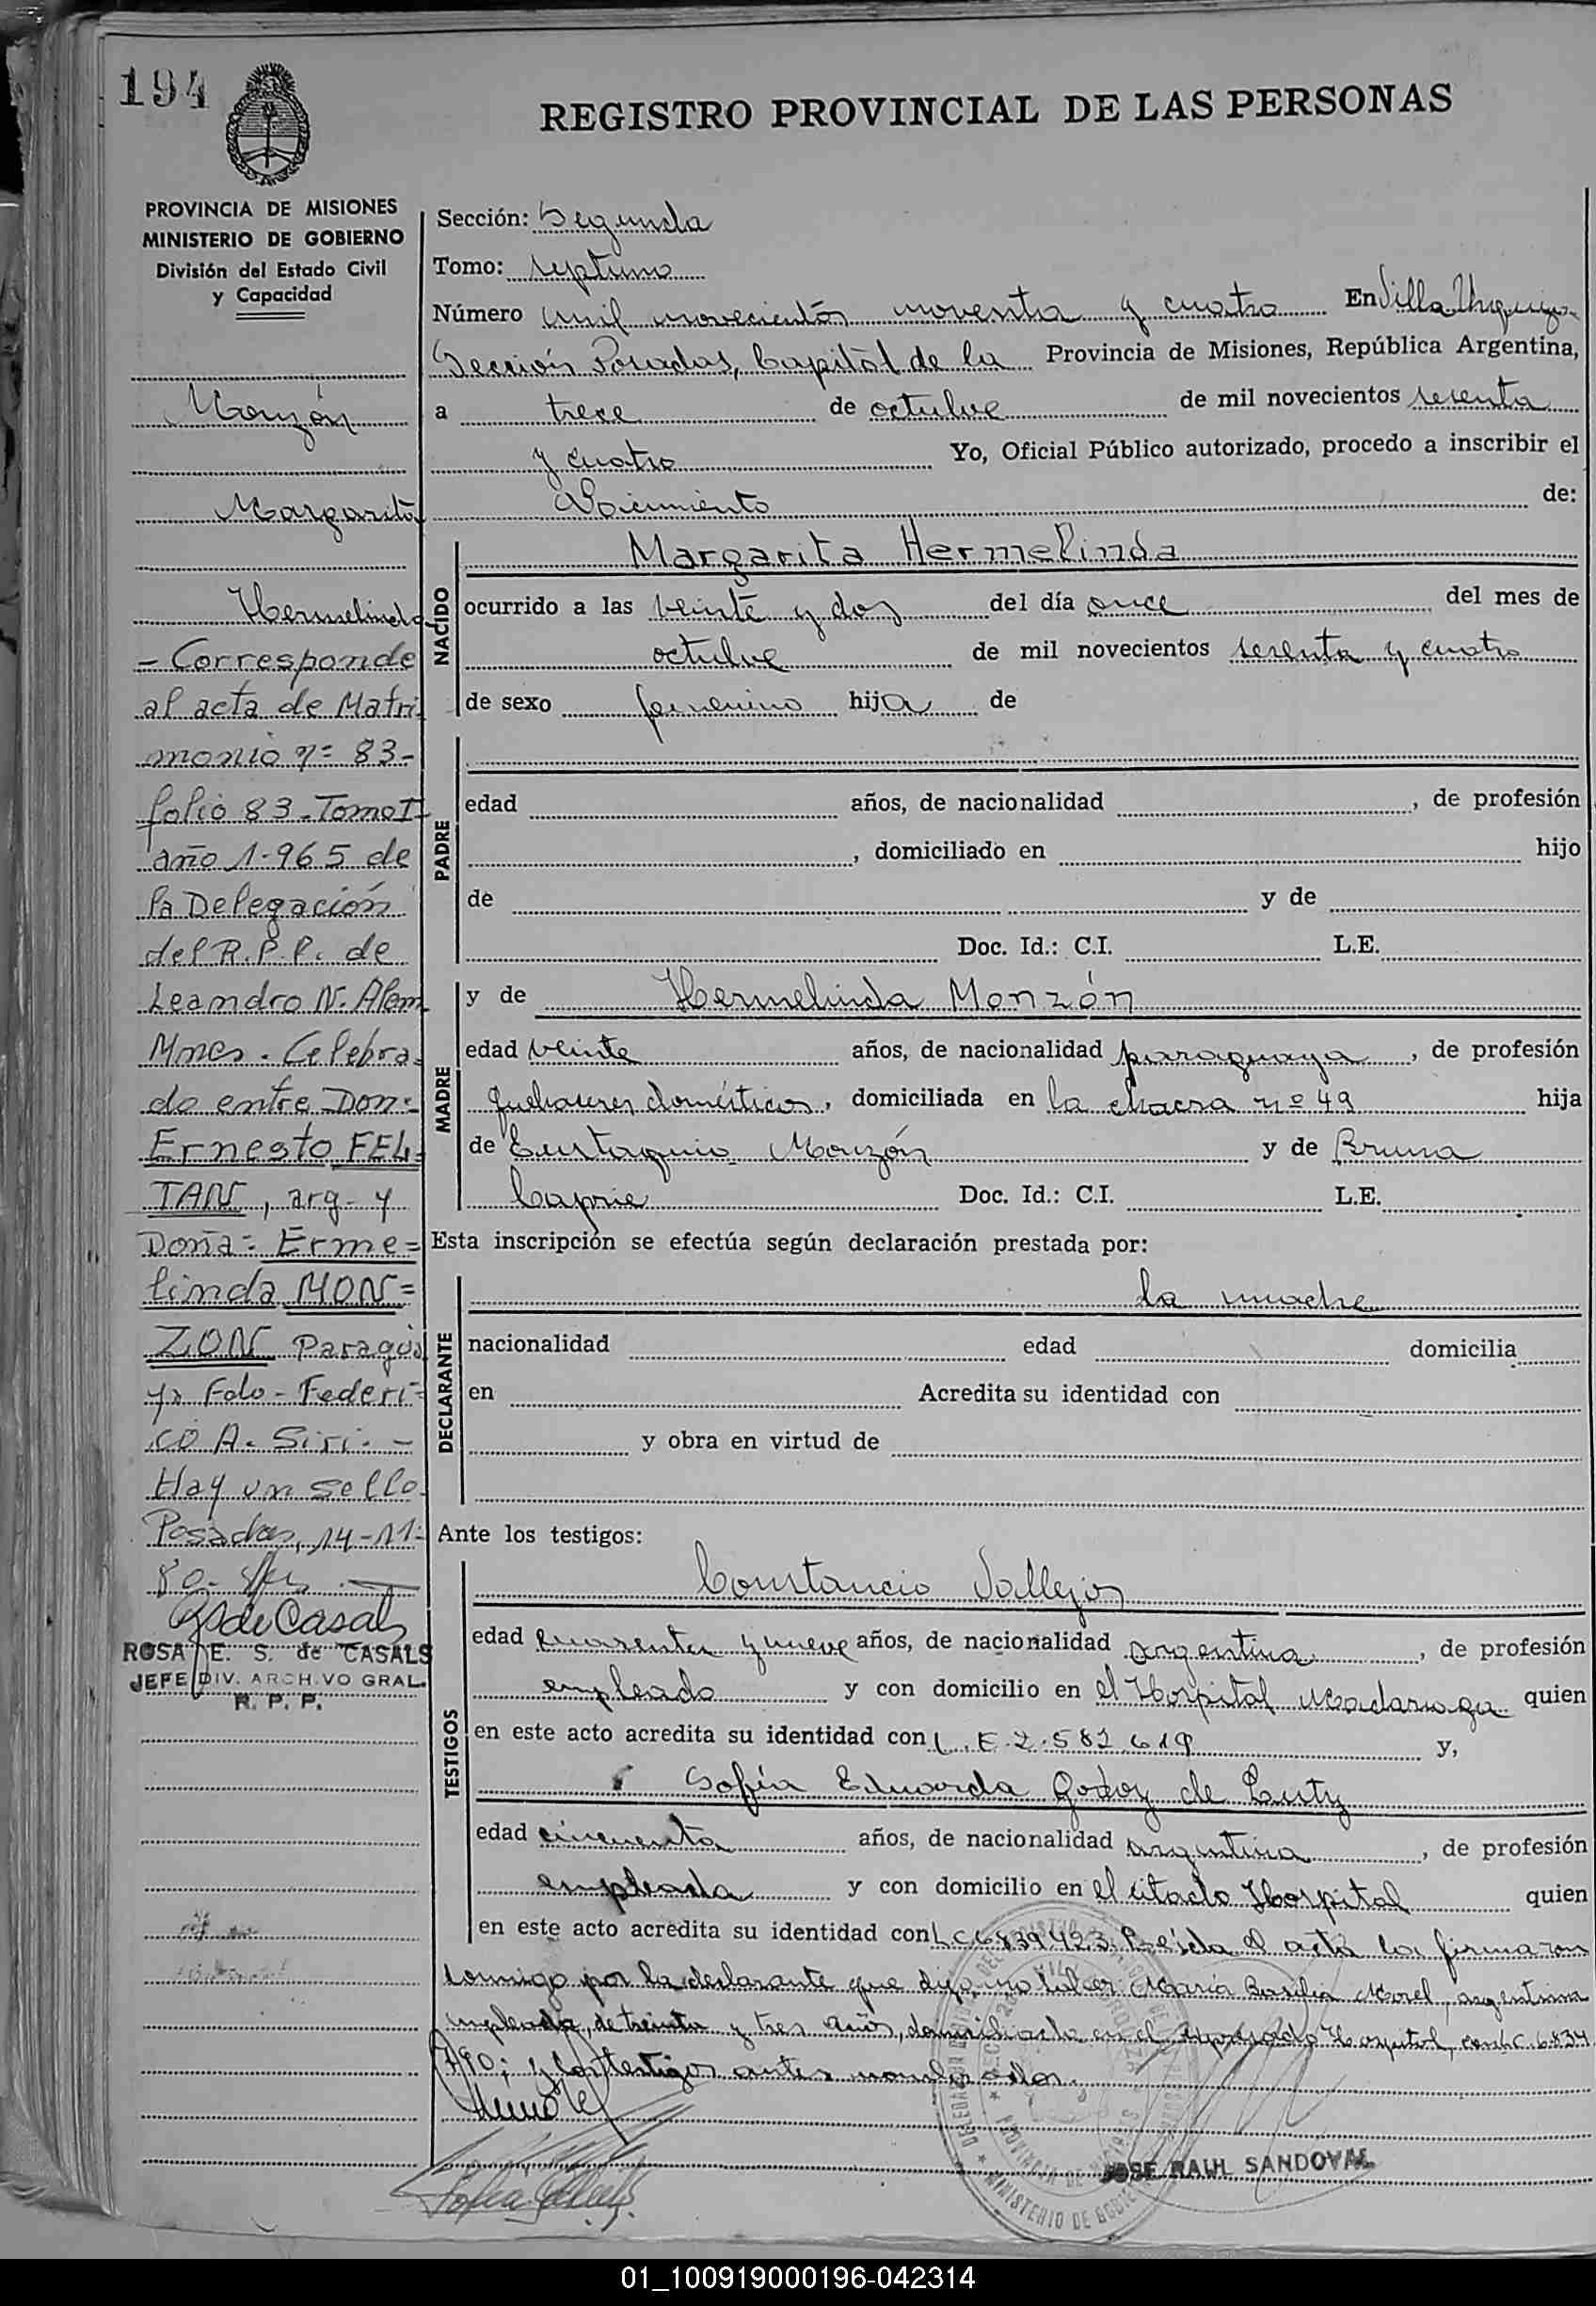 194
REGISTRO PROVINCIAL DE LAS PERSONAS
PROVINCIA DE MISIONES
MINISTERIO DE GOBIERNO
División del Estado Civil
y Capacidad
Monzón
Margarita
Hermelinda
- Corresponde
al acta de Matri
monio nº 83-
folio 83-Tomo I
año 1.965 de
la Delegación
del R.P.P. de
Leandro N. Alem
Mnes. Celebra=
do entre Don:
Ernesto FEL=
TAN, arg- y
Doña: Erme=
linda MON=
ZON Paragua
ya Fdo- Federi=
co A. Siri. -
Hay un sello
Posadas, 14-11-
80.
RSdeCasals
ROSA E. S. de CASALS
JEFE DIV. ARCHIVO GRAL.
R. P. P.
Sección: Segunda
Tomo: septimo
Número mil novecientos noventa y cuatro En Villa Urquiza
Sección Posadas, Capital de la Provincia de Misiones, República Argentina,
a trece de octubre de mil novecientos sesenta
y cuatro Yo, Oficial Público autorizado, procedo a inscribir el
Nacimiento de:
NACIDO
Margarita Hermelinda
ocurrido a las veinte y dos del día once del mes de
octubre de mil novecientos sesenta y cuatro
de sexo femenino hija de
PADRE
edad años, de nacionalidad , de profesión
, domiciliado en hijo
de y de
Doc. Id.: C.I. L.E.
MADRE
y de Hermelinda Monzón
edad veinte años, de nacionalidad paraguaya, de profesión
quehaceres domésticos, domiciliada en la chacra nº 49 hija
de Eustaquio Monzón y de Bruna
Caprie Doc. Id.: C.I. L.E.
Esta inscripción se efectúa según declaración prestada por:
DECLARANTE
la madre
nacionalidad edad domicilia
en Acredita su identidad con
y obra en virtud de
Ante los testigos:
TESTIGOS
Constancio Vallejos
edad cuarenta y nueve años, de nacionalidad argentina, de profesión
empleado y con domicilio en el Hospital Madariaga quien
en este acto acredita su identidad con L.E.2.582.619 y,
Sofía Eduarda Godoy de Lutz
edad cincuenta años, de nacionalidad argentina, de profesión
empleada y con domicilio en el citado Hospital quien
en este acto acredita su identidad con LC6839423. Leída el acta la firmaron
conmigo por la declarante que dijo no saber María Basilia Morel, argentina
empleada, de treinta y tres años, domiciliada en el expresado Hospital, con LC.6.834
790; y los testigos antes nombrados.
JOSE RAUL SANDOVAL
01_100919000196-042314